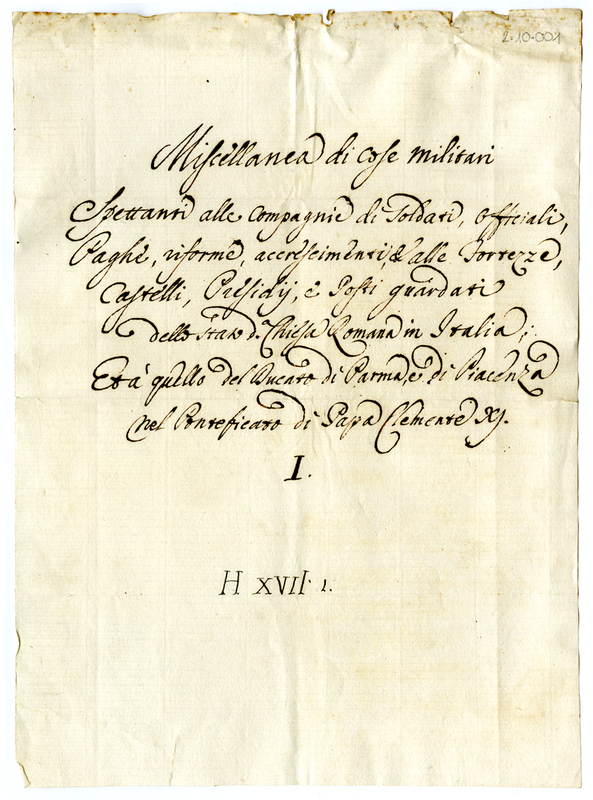 2.10.001
Miscellanea di cose militari
Spettanti alle compagnie di Soldati, Officiali,
Paghe, riforme, accrescimenti, & alle Fortezze,
Castelli, Presidij, e Posti guardati
dello stato d. Chiesa Romana in Italia;
Et à quello del Ducato di Parma, e di Piacenza
nel Ponteficato di Papa Clemente XI.
I.
H XVII. 1.